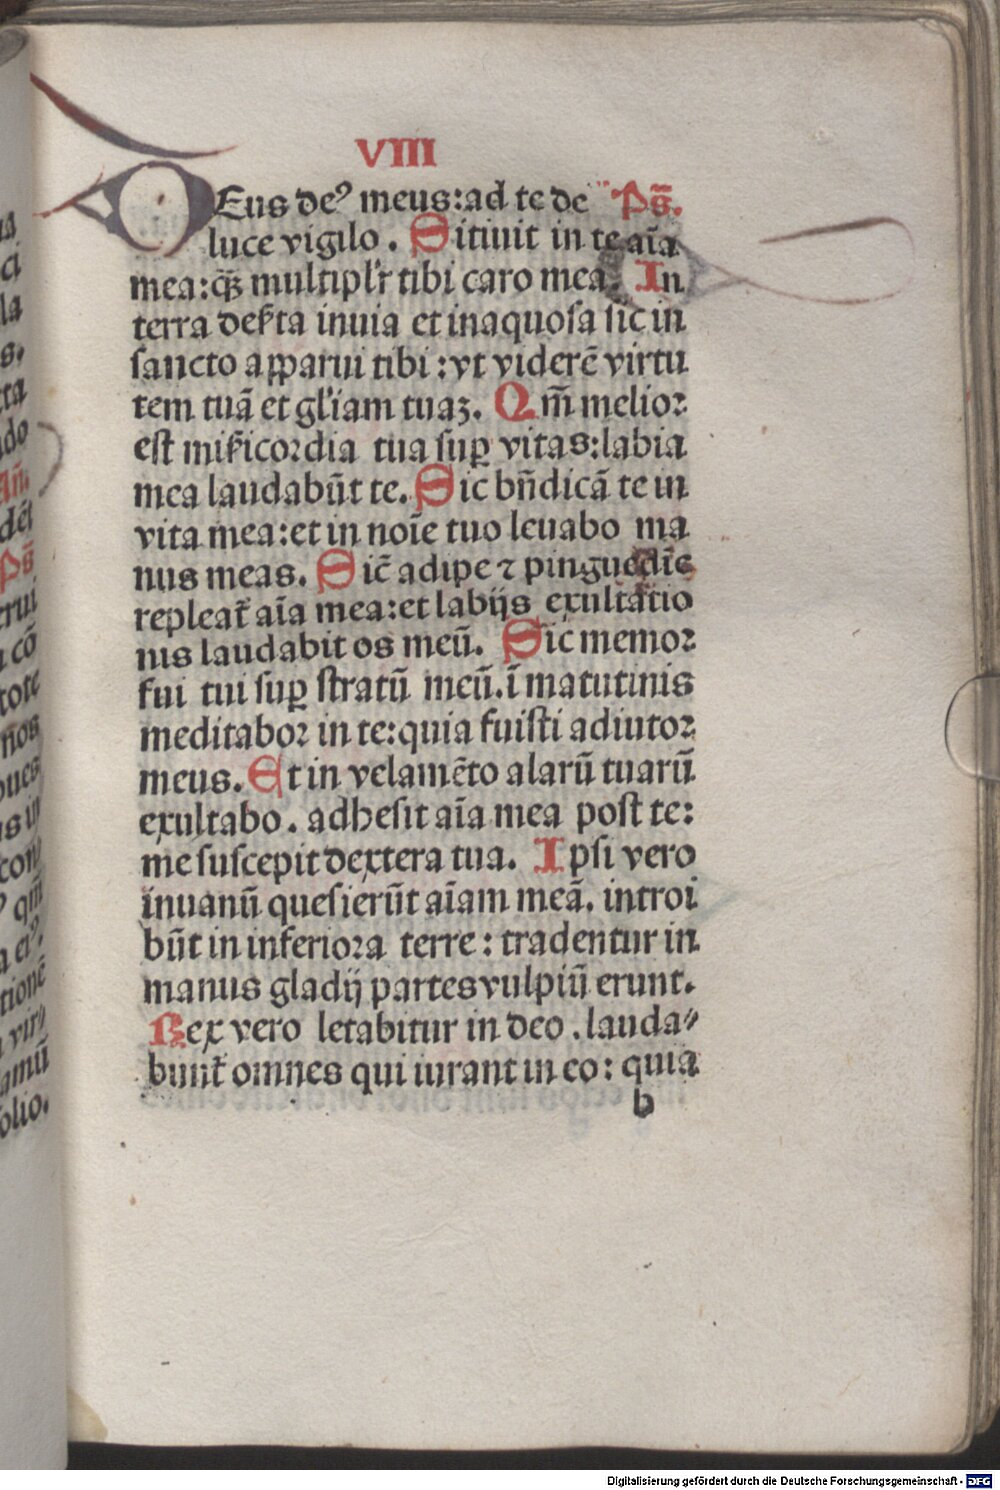 VIII
DEus deꝰ meus:ad te de Ps̄.
luce vigilo. Sitiuit in te aīa
mea:q̈ꝫ multipl'r tibi caro mea. In
terra deẜta inuia et inaquosa sic̄ in
sancto apparui tibi:vt viderē virtu
tem tuā et gl'iam tuaꝫ. Qm̄ melioꝛ
est miẜicoꝛdia tua suꝑ vitas:labia
mea laudabūt te. Sic bn̄dicā te in
vita mea:et in noīe tuo leuabo ma
nus meas. Sic̄ adipe ⁊ pinguedīe
repleat̄ aīa mea:et labijs exultatio
nis laudabit os meū. Sic memoꝛ
fui tui suꝑ stratū meū.ī matutinis
meditaboꝛ in te:quia fuisti adiutoꝛ
meus. Et in velamēto alarū tuarū
exultabo. adhesit aīa mea post te:
me suscepit dextera tua. Ipsi vero
inuanū quesierūt aīam meā. introi
būt in inferioꝛa terre: tradentur in
manus gladij partes vulpiū erunt.
Rex vero letabitur in deo. lauda⸗
bunt̄ omnes qui iurant in eo: quia
b
ci
la
s.
ta
do
An̄.
Ps̄
rui
cō
tote
nos
oues
s in
qm̄
tionē
vir⸗
amū
olio.
Digitalisierung gefördert durch die Deutsche Forschungsgemeinschaft - DFG